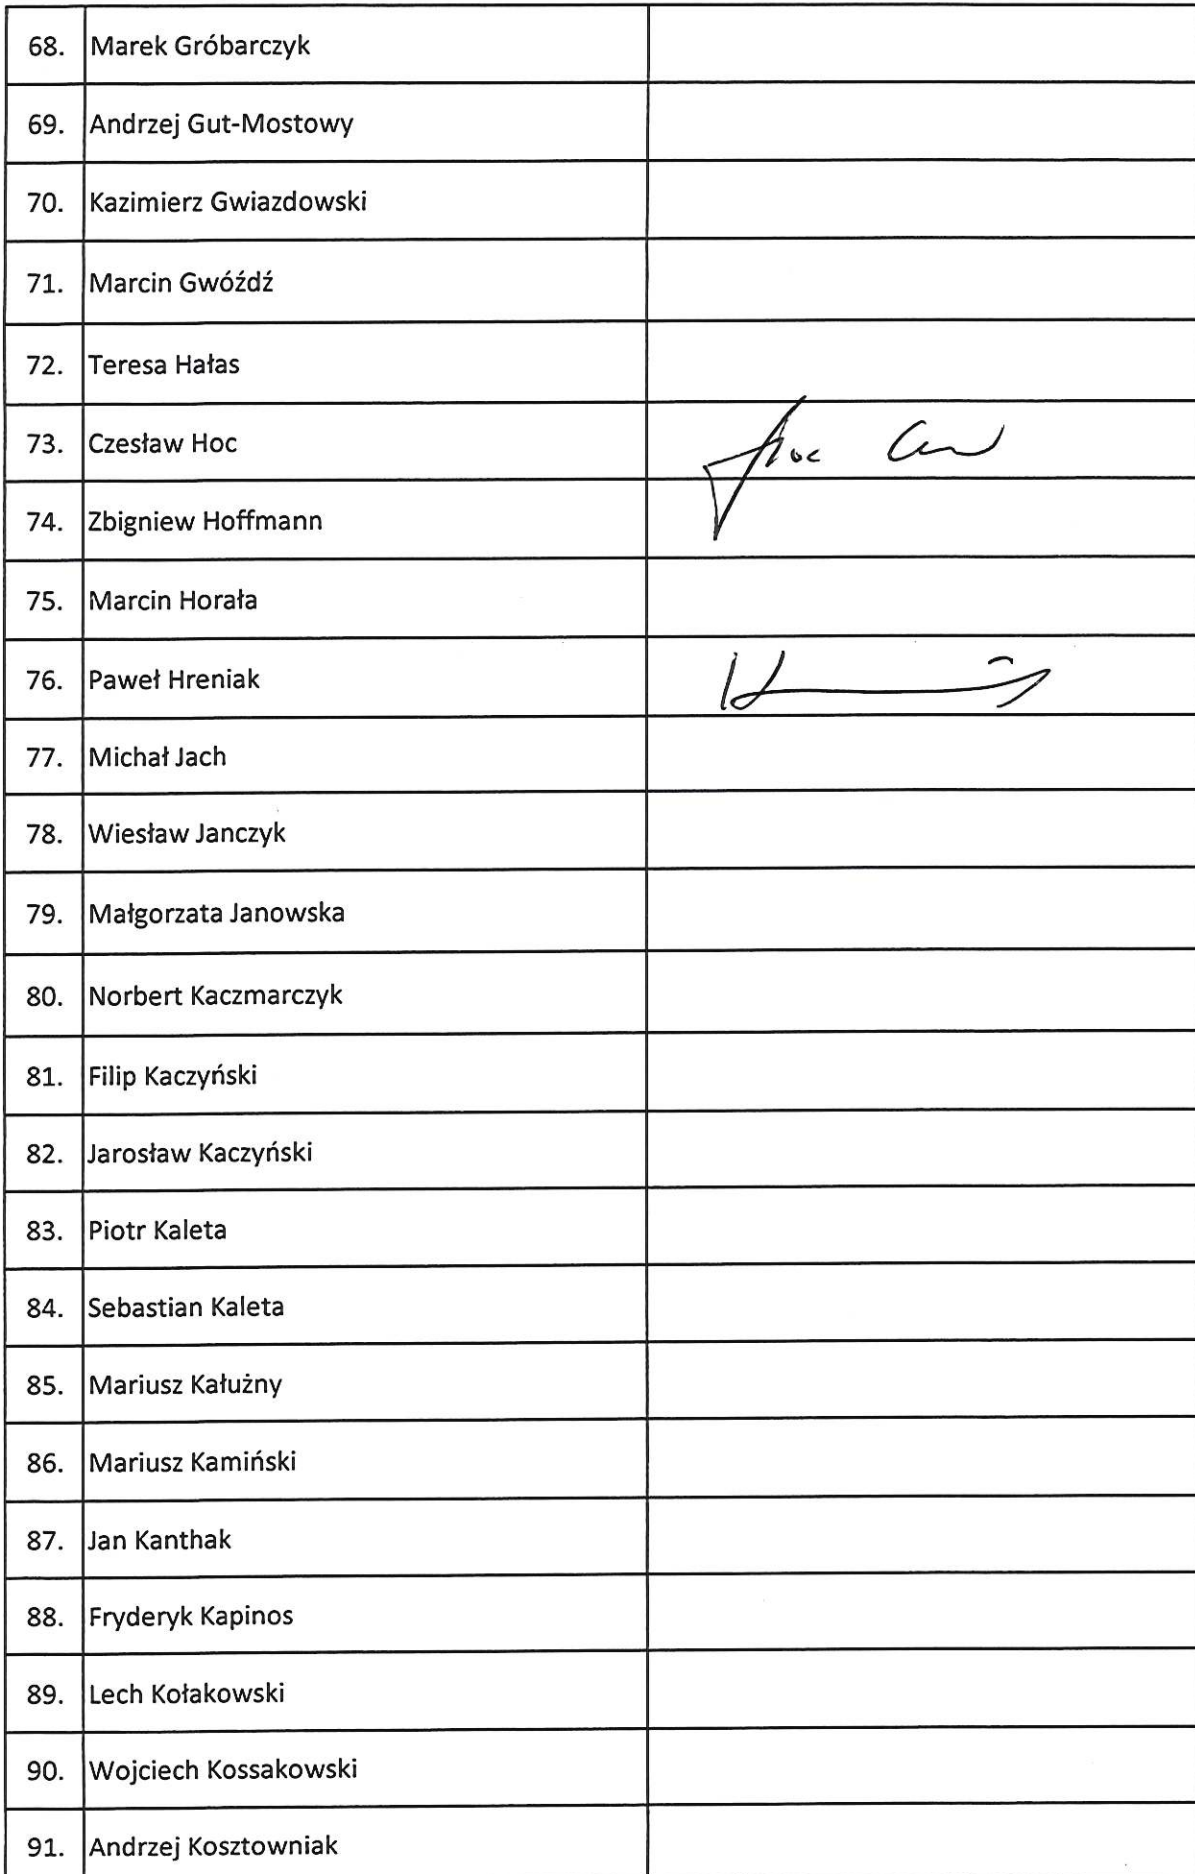 68. Marek Gróbarczyk
69. Andrzej Gut-Mostowy
70. Kazimierz Gwiazdowski
71. Marcin Gwóźdź
72. Teresa Hałas
73. Czesław Hoc Hoc
74. Zbigniew Hoffmann
75. Marcin Horała
76. Paweł Hreniak
77. Michał Jach
78. Wiesław Janczyk
79. Małgorzata Janowska
80. Norbert Kaczmarczyk
81. Filip Kaczyński
82. Jarosław Kaczyński
83. Piotr Kaleta
84. Sebastian Kaleta
85. Mariusz Kałużny
86. Mariusz Kamiński
87. Jan Kanthak
88. Fryderyk Kapinos
89. Lech Kołakowski
90. Wojciech Kossakowski
91. Andrzej Kosztowniak